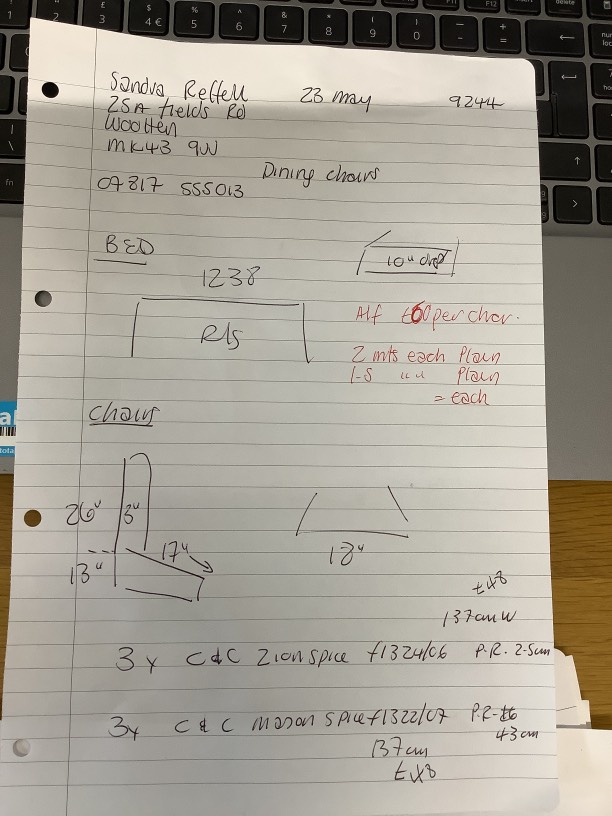 Sandra Reffell 23 may 9244
25A fields Rd
Wootten
MK43 9JJ
Dining chairs
07817 555013
BED
10" drop
1238
R/S
Alf £60 per chair.
2 mts each Plain
1-5 " " Plain
= each
Chairs
26" 3"
17"
13"
18"
£48
137cm W
3 x C&C Zion spice f1324/06 P.R. 2.5cm
3x C & C mason spice f1322/07 P.R-
43 cm
137cm
£48